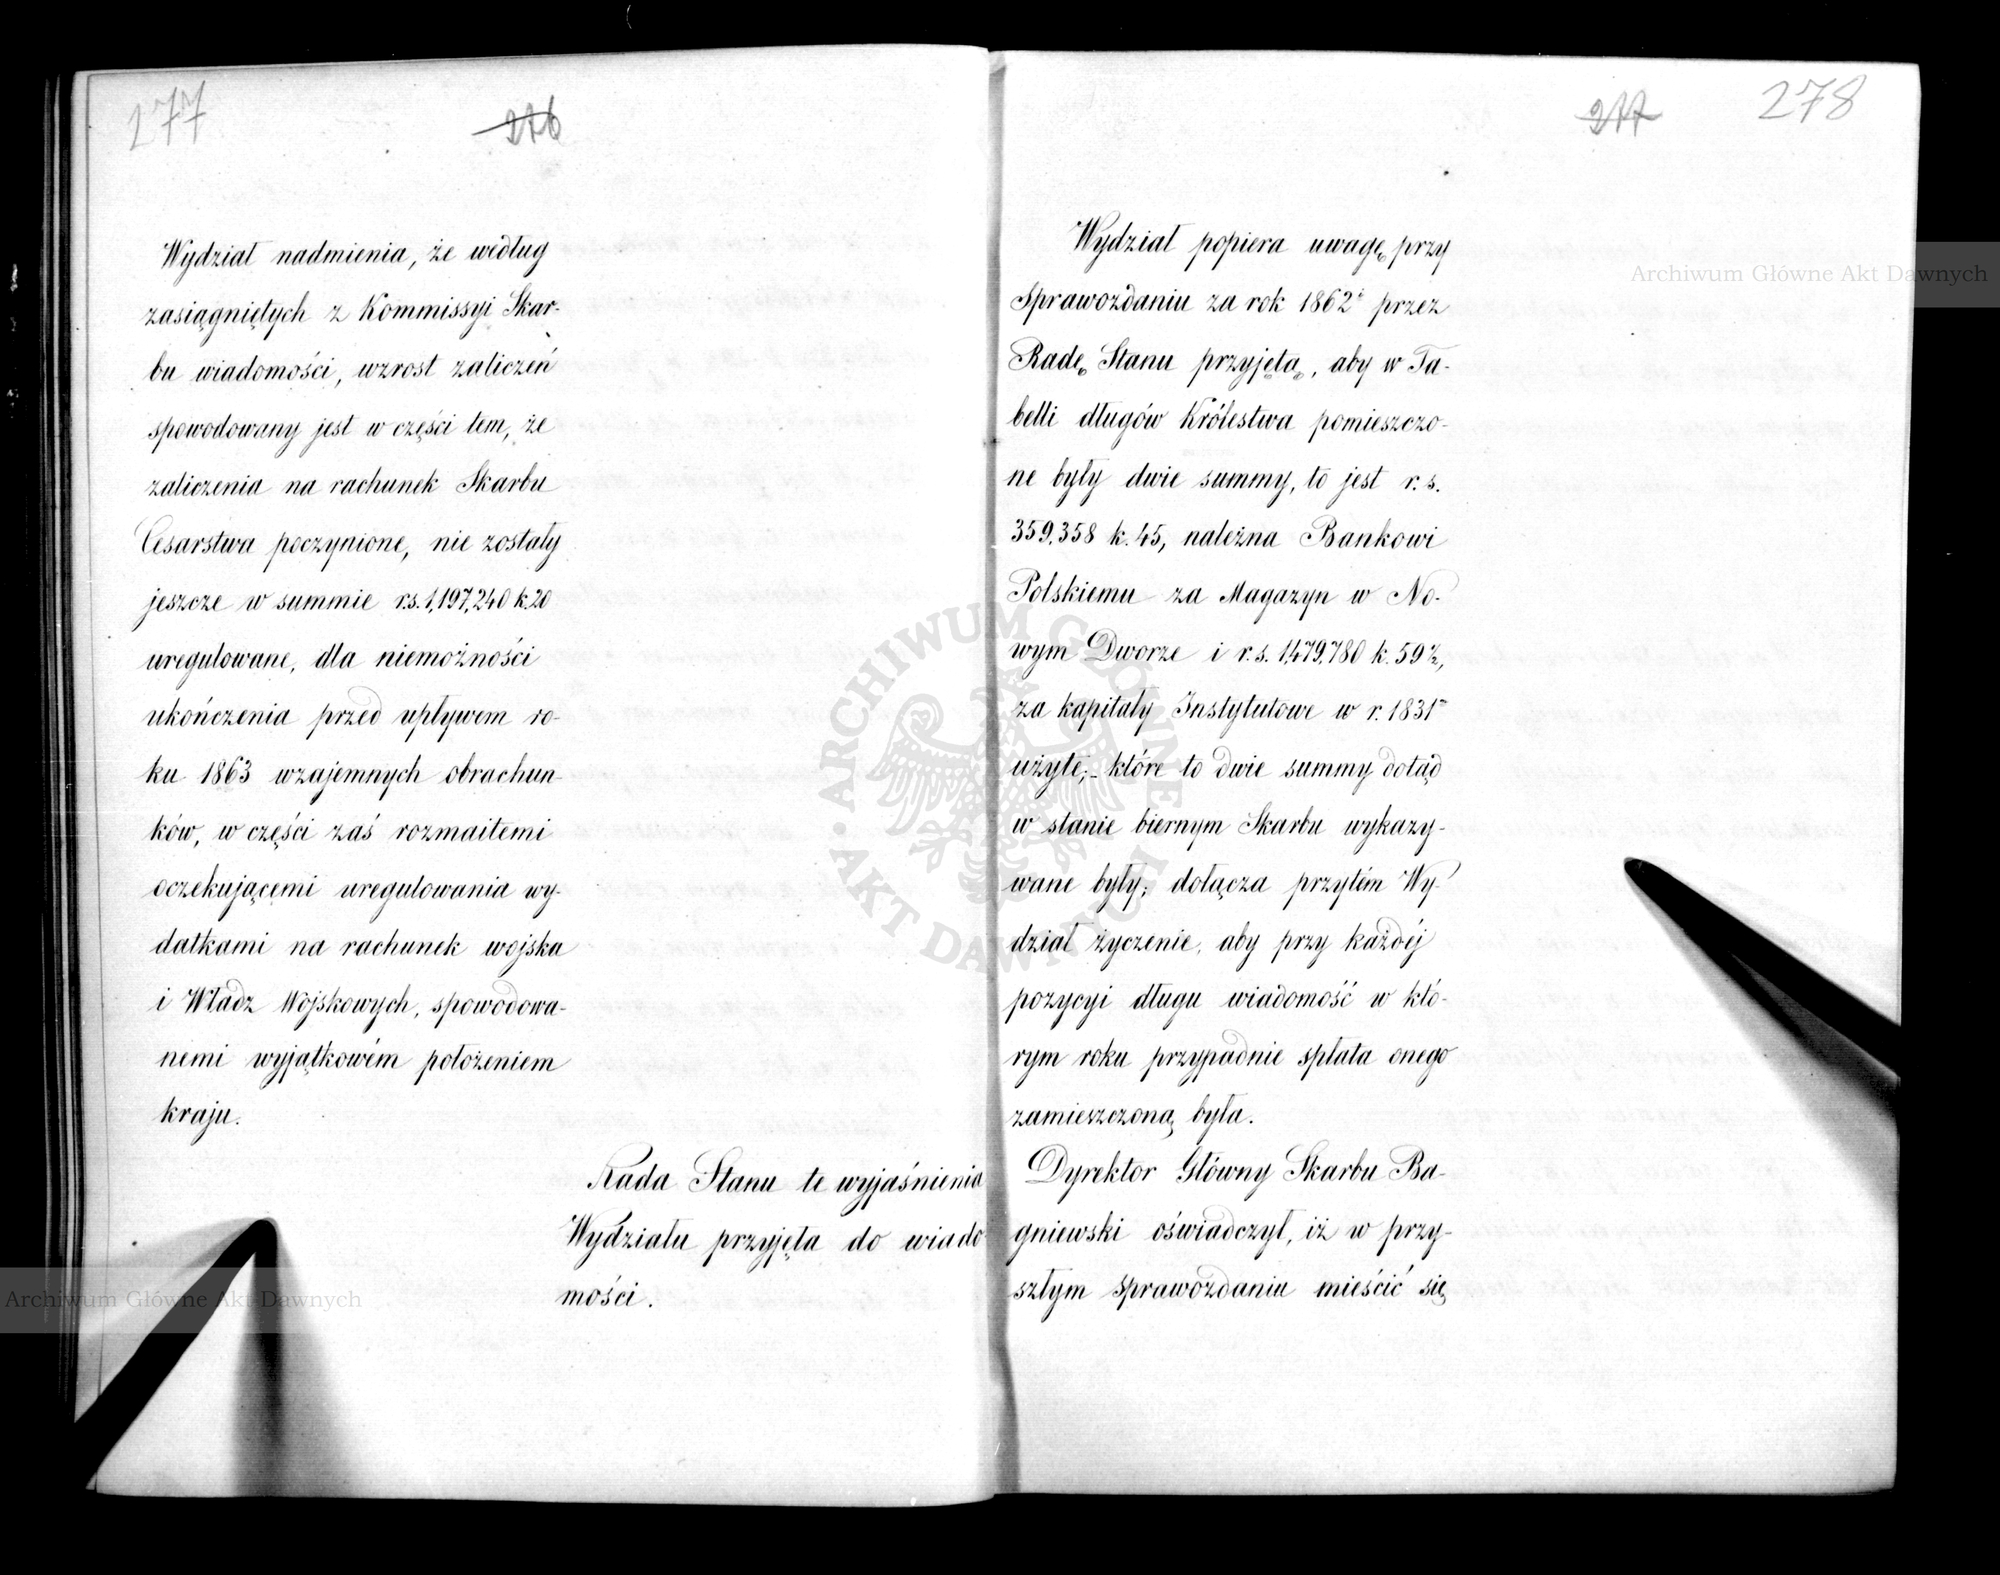 277
276
Wydział nadmienia, że według
zasiągniętych z Kommissyi Skar-
bu wiadomości, wzrost zaliczeń
spowodowany jest w części tem, że
zaliczenia na rachunek Skarbu
Cesarstwa poczynione, nie zostały
jeszcze w summie rs. 1,197,240 k. 20
uregulowane, dla niemożności
ukończenia przed upływem ro-
ku 1863 wzajemnych obrachun-
ków, w części zaś rozmaitemi
oczekującemi uregulowania wy-
datkami na rachunek wojska
i Władz Wojskowych, spowodowa-
nemi wyjątkowém położeniem
kraju.
Rada Stanu te wyjaśnienia
Wydziału przyjęła do wiado
mości.
277
278
Wydział popiera uwagę, przy
Sprawozdaniu za rok 1862 przez
Radę Stanu przyjętą, aby w Ta-
belli długów Królestwa pomieszczo-
ne były dwie summy, to jest r. s.
359,358 k. 45, należna Bankowi
Polskiemu za Magazyn w No-
wym Dworze i r. s. 1,479,780 k. 59½,
za kapitały Instytutowe w r. 1831m
użyte; - które to dwie summy dotąd
w stanie biernym Skarbu wykazy-
wane były; dołącza przytém Wy-
dział życzenie, aby przy każdéj
pozycyi długu wiadomość w któ-
rym roku przypadnie spłata onego
zamieszczoną była.
Dyrektor Główny Skarbu Ba-
gniewski oświadczył, iż w przy-
szłym sprawozdaniu mieścić się
Archiwum Główne Akt Dawnych
Archiwum Główne Akt Dawnych
ARCHIWUM GŁÓWNE AKT DAWNYCH